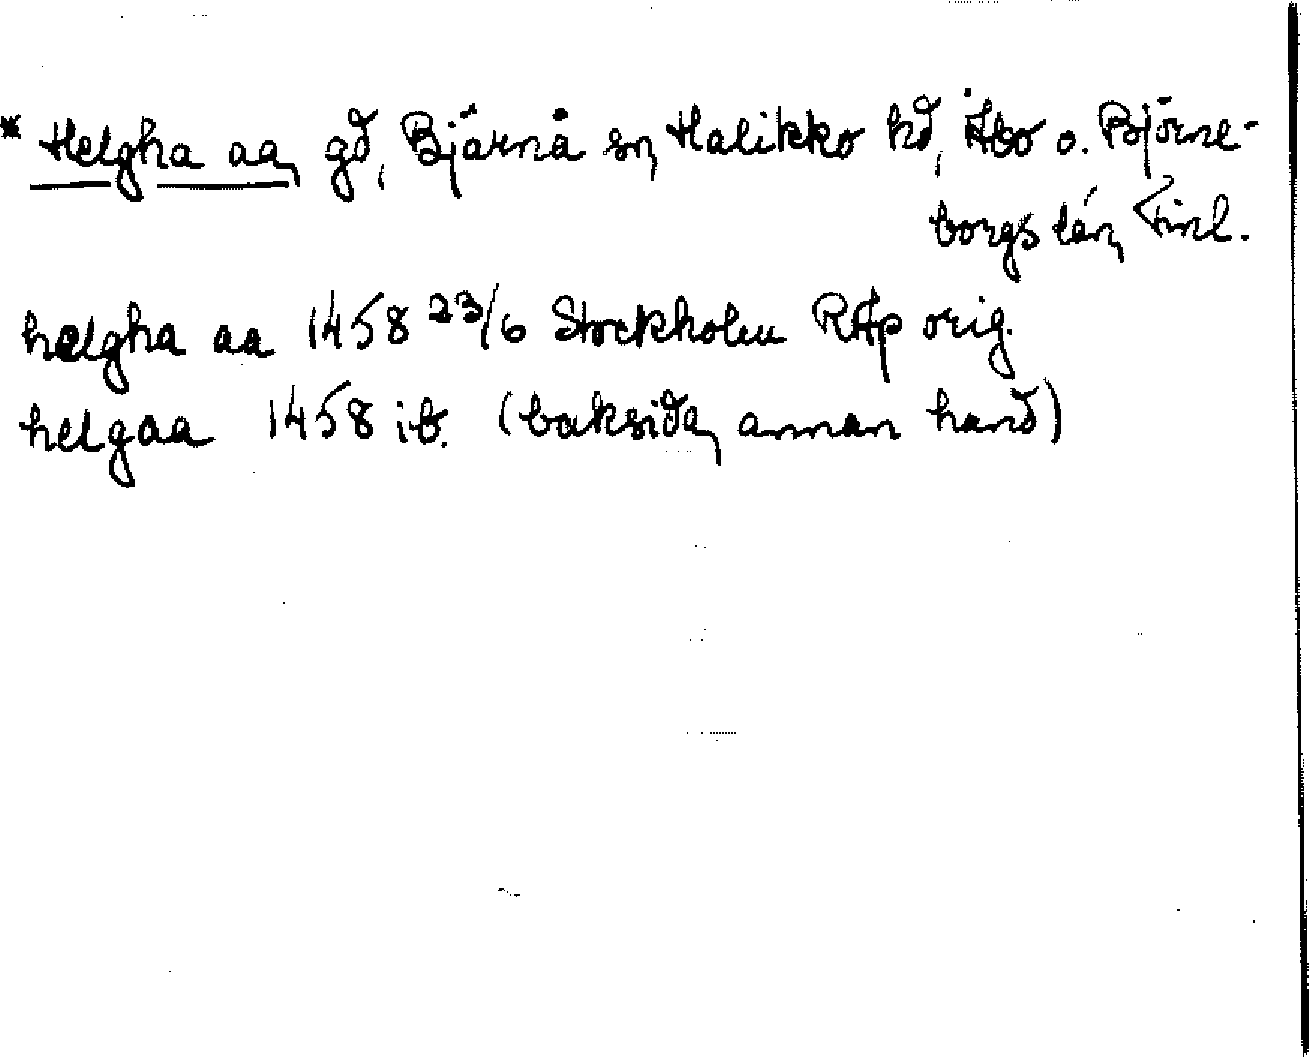 * Helgha aa, gd, Bjärnå sn, Halikko hd, Åbo o. Björne-
borgs län, Finl.
hælgha aa 1458 23/6 Stockholm RAp orig.
helgaa 1458 ib. (baksida, annan hand)